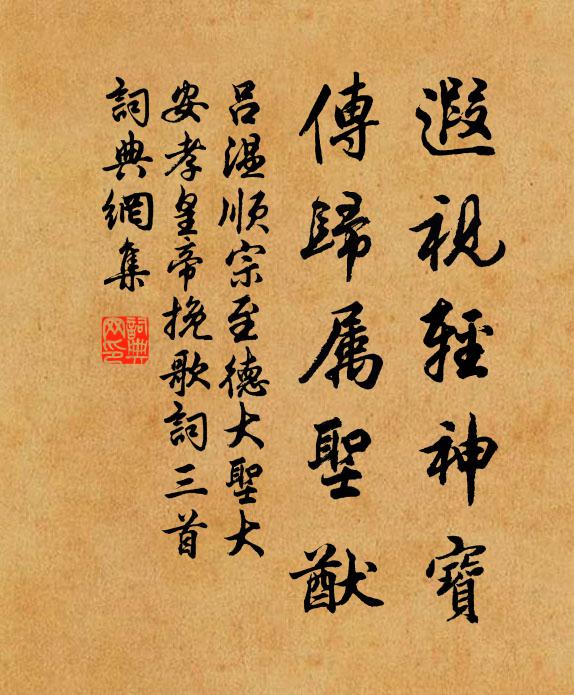 遐視輕神寶
傳歸属聖猷
呂溫順宗至德大聖大
安孝皇帝挽歌詞三首
詞典網集
詞典网印